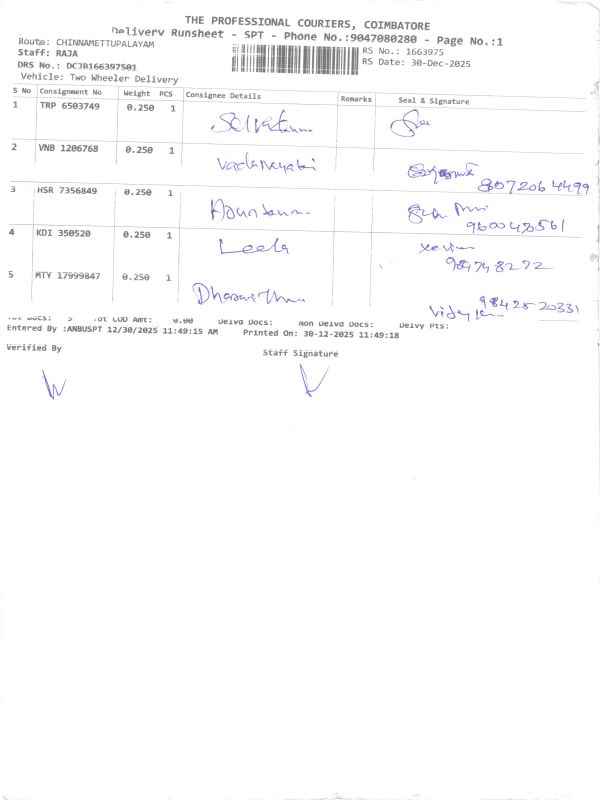 THE PROFESSIONAL COURIERS, COIMBATORE
Delivery Runsheet - SPT - Phone No.:9047080280 - Page No.:1
Route: CHINNAMETTUPALAYAM
Staff: RAJA
DRS No.: DCJB166397501
Vehicle: Two Wheeler Delivery
RS No.: 1663975
RS Date: 30-Dec-2025
S No Consignment No Weight PCS Consignee Details Remarks Seal & Signature
1 TRP 6503749 0.250 1 Selvakum
2 VNB 1206768 0.250 1 Vadanayaki
8072064499
3 HSR 7356849 0.250 1 Arunkum
4 KDI 350520 0.250 1 Leela
5 MTY 17999847 0.250 1
9842520331
Tot Docs: 5 Tot COD Amt: 0.00 Delvd Docs: Non Delvd Docs: Delvy Pts:
Entered By :ANBUSPT 12/30/2025 11:49:15 AM Printed On: 30-12-2025 11:49:18
Verified By
Staff Signature